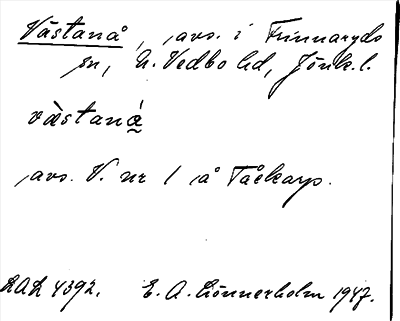 Västanå, avs. i Frinnaryds
sn, N. Vedbo hd, Jönk. l.
västaná̰
avs. V. nr 1 å Tåekarp.
LAL 4392. E. A. Lönnerholm 1947.